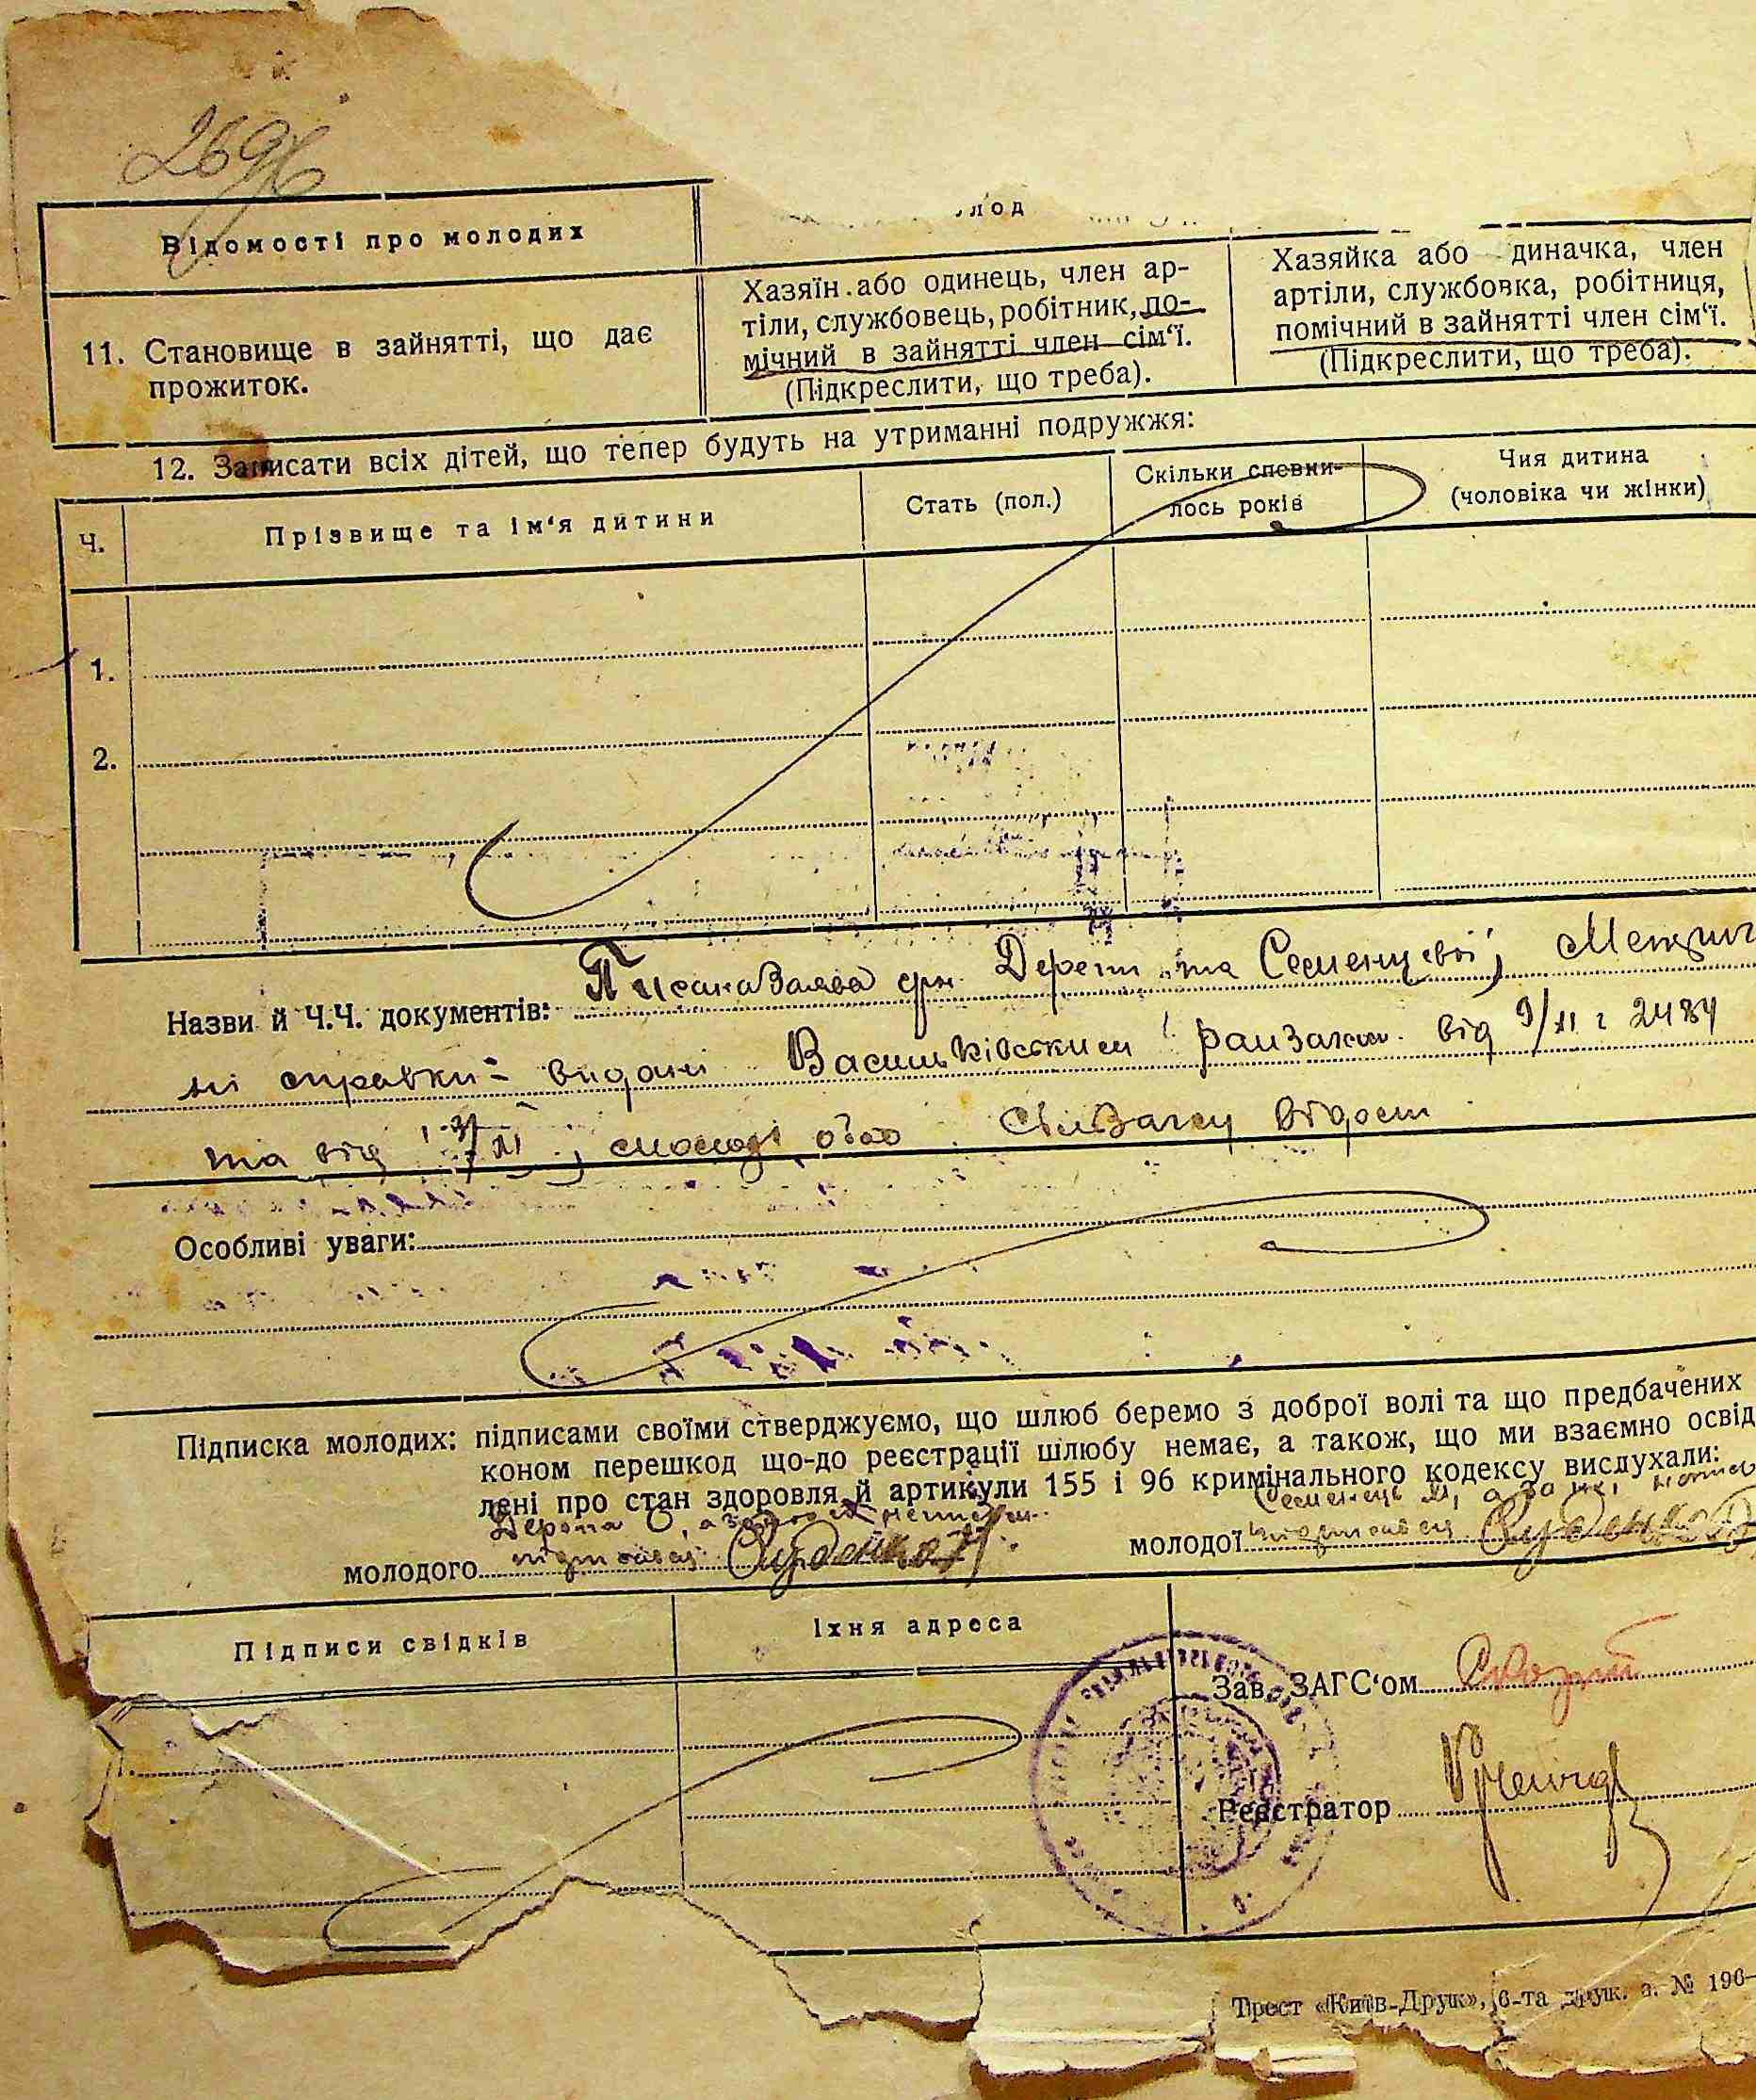 269
Відомості про молодих
лод
11. Становище в зайнятті, що дає
прожиток.
Хазяїн або одинець, член ар-
тіли, службовець, робітник, по-
мічний в зайнятті член сім‘ї.
(Підкреслити, що треба).
Хазяйка або диначка, член
артіли, службовка, робітниця,
помічний в зайнятті член сім‘ї.
(Підкреслити, що треба).
12. Записати всіх дітей, що тепер будуть на утриманні подружжя:
Ч.
Прізвище та ім‘я дитини
Стать (пол.)
Скільки спевни-
лось років
Чия дитина
(чоловіка чи жінки)
1.
2.
Назви й Ч.Ч. документів: Писана Заява гр-н Дерепи та Семенцевої;
ні справки - видані Васильківським від 9/XI 2484
та від /XI; молоді обоє Сільзагсу відомі
Особливі уваги:
Підписка молодих: підписами своїми стверджуємо, що шлюб беремо з доброї волі та що предбачених
коном перешкод що-до реєстрації шлюбу немає, а також, що ми взаємно освід
лені про стан здоровля й артикули 155 і 96 кримінального кодексу вислухали:
молодого підписався
молодої підписався
Підписи свідків
Їхня адреса
Зав. ЗАГС‘ом
Реєстратор
Трест «Київ-Друк», 6-та друк. з. № 190-